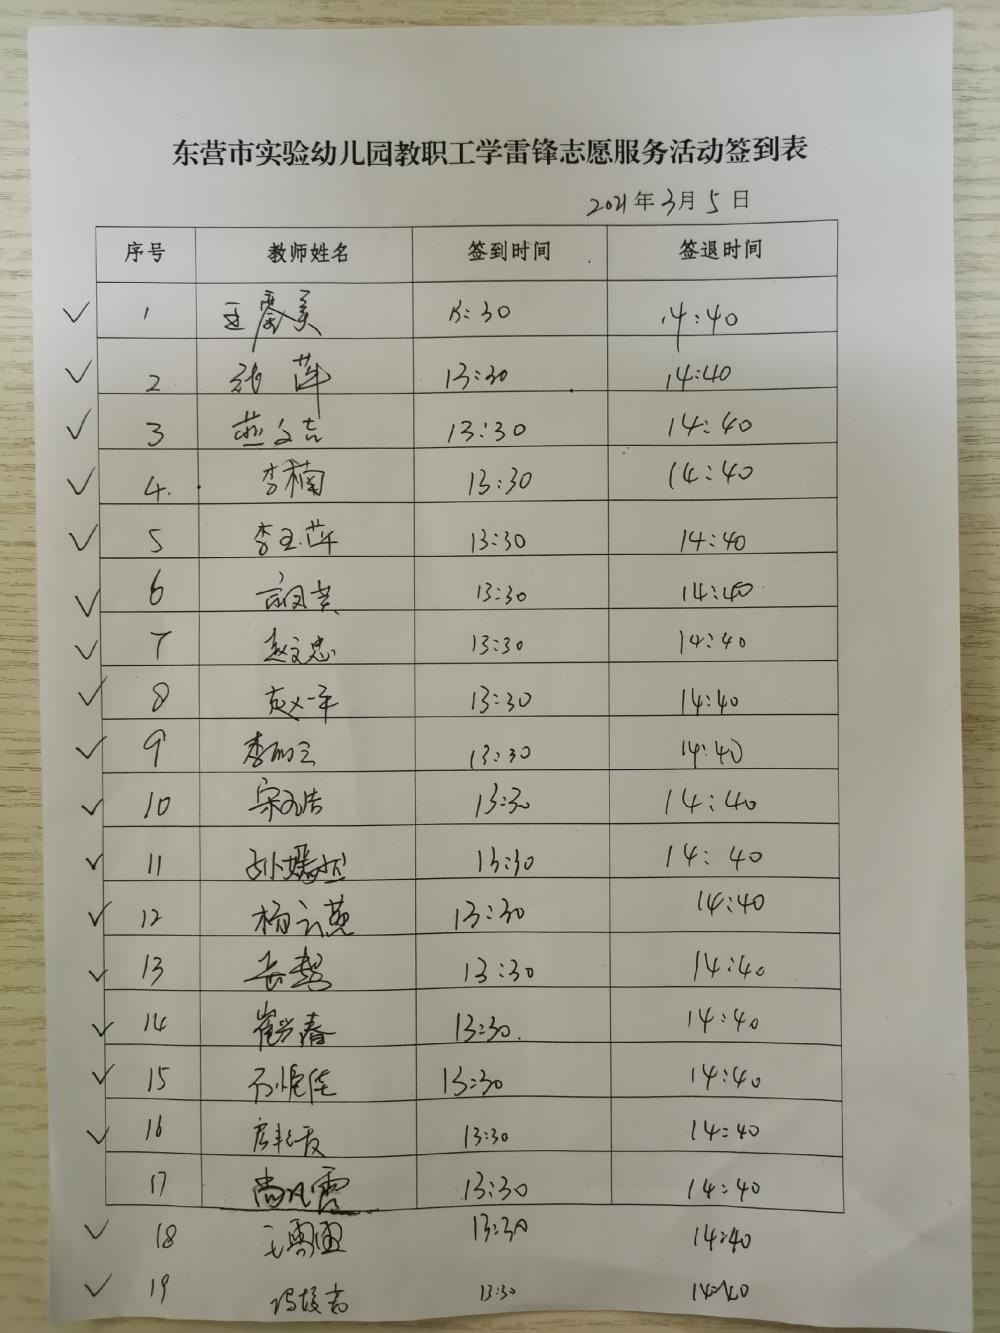 东营市实验幼儿园教职工学雷锋志愿服务活动签到表
2021年3月5日
序号 教师姓名 签到时间 签退时间
1 13:30 14:40
2 张萍 13:30 14:40
3 燕文吉 13:30 14:40
4. 李楠 13:30 14:40
5 李玉萍 13:30 14:40
6 13:30 14:40
7 赵文忠 13:30 14:40
8 赵一平 13:30 14:40
9 13:30 14:40
10 13:30 14:40
11 13:30 14:40
12 杨云燕 13:30 14:40
13 13:30 14:40
14 崔兴春 13:30. 14:40
15 13:30 14:40
16 13:30 14:40
17 13:30 14:40
18 13:30 14:40
19 13:30 14:40